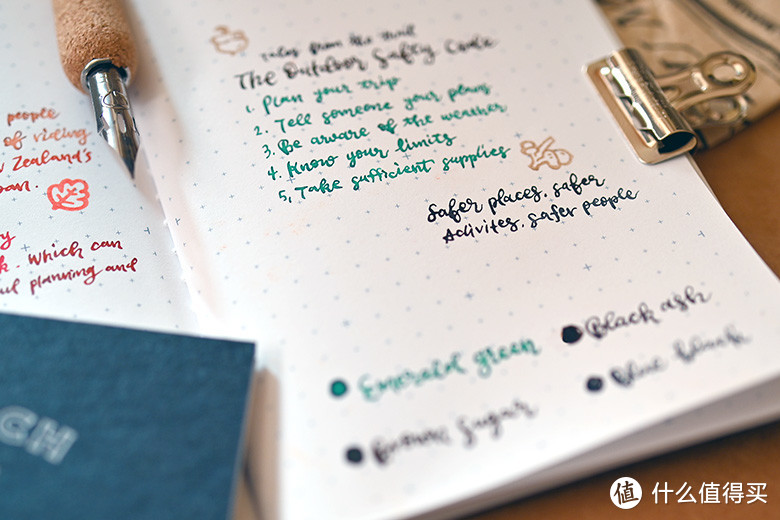 people
of viding
Zealand's
y
k. Which can
ul planning and
CH
rules from the trail
The Outdoor Safty Code
1. Plan your trip
2. Tell someone your plans
3. Be aware of the weather
4. Know your limits
5. Take sufficient supplies
Safer places, safer
Activites, safer people
Emerald green
Black ash
Blue black
Brown sugar
值 什么值得买